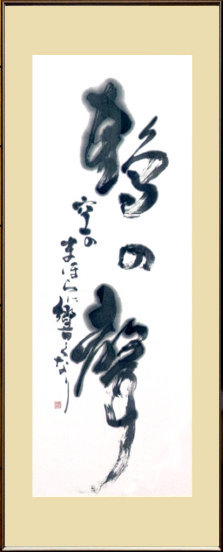 鶴の聲
空のまほらに響くなり